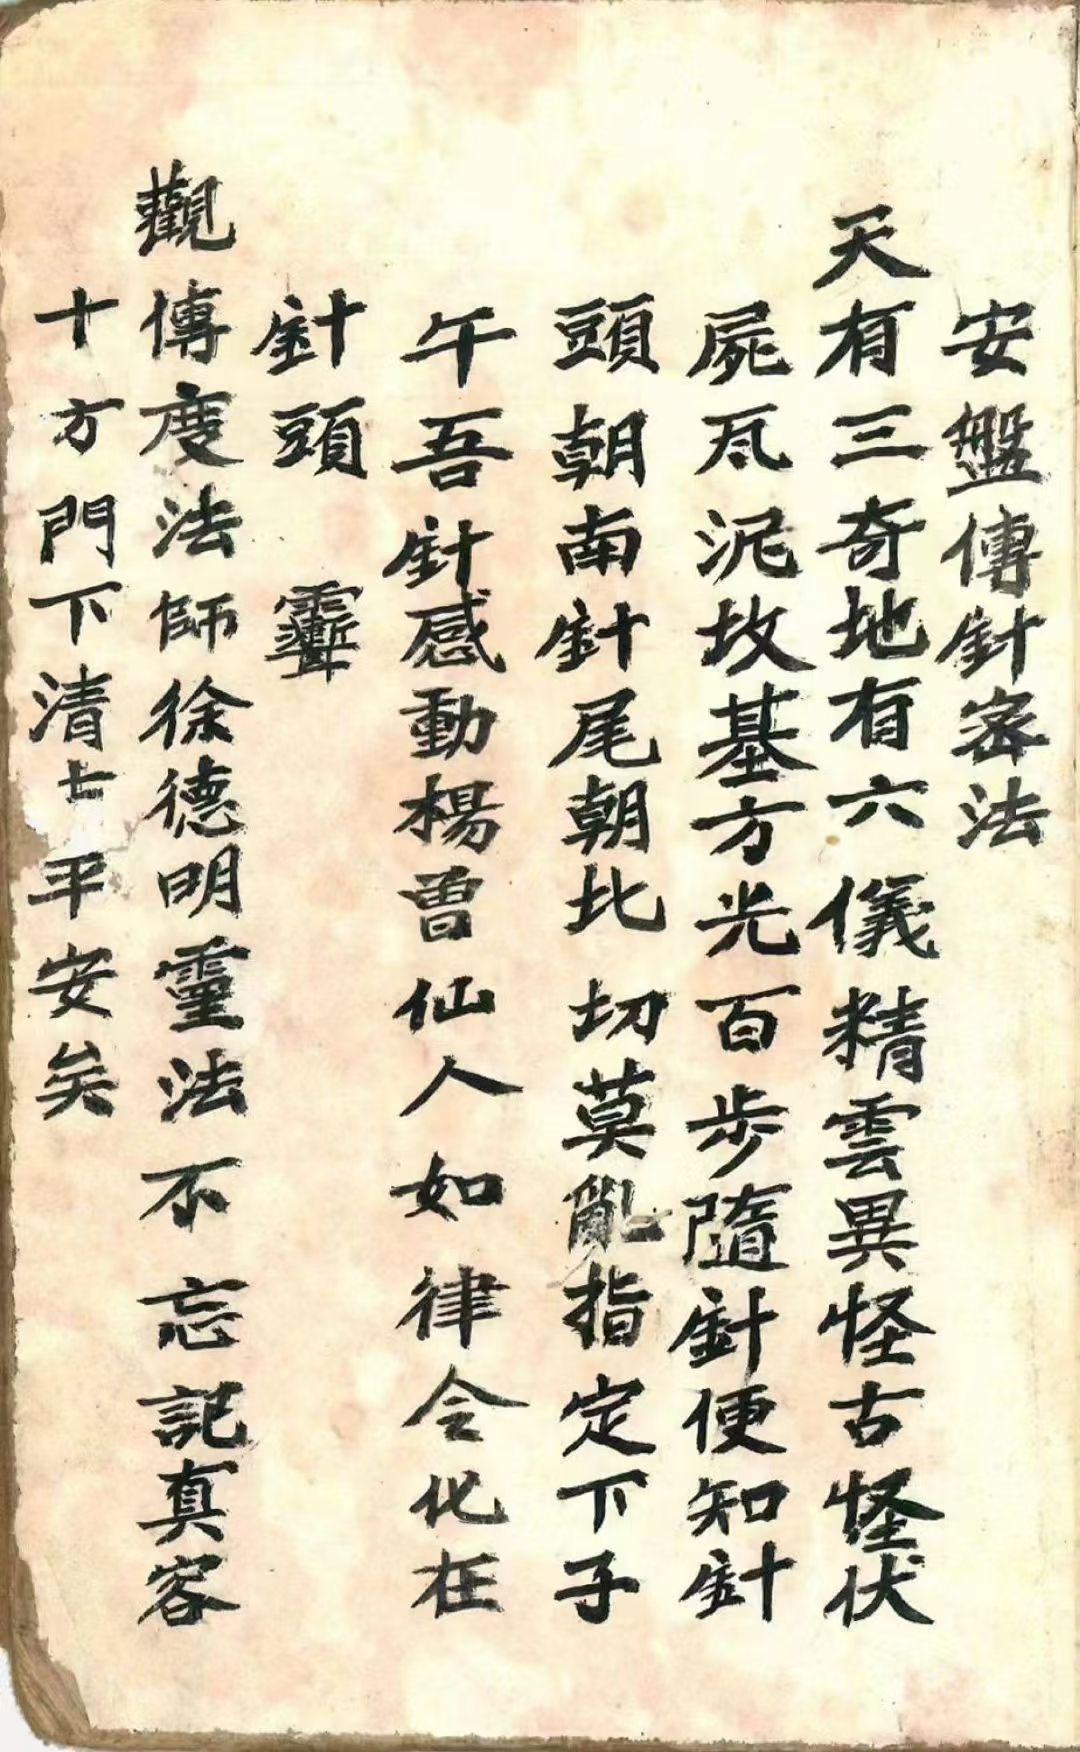 安盤傳針密法
天有三奇地有六儀精雲異怪古怪伏
屍瓦泥坟基方光百步隨針便知針
頭朝南針尾朝比切莫亂指定下子
午吾針感動楊曾仙人如律令化在
針頭
觀傳度法師徐德明靈法不忘記真容
十方門下清士平安矣